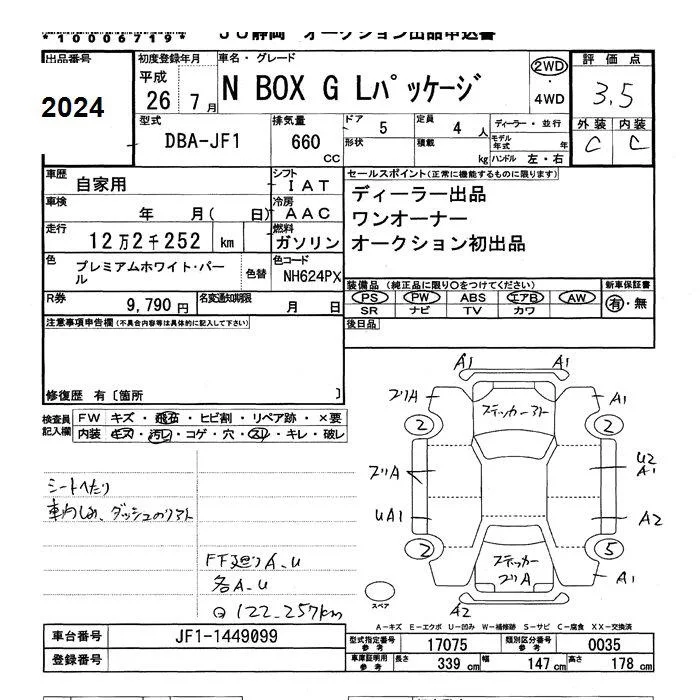 *10006719*
JU静岡 オークション出品申込書
出品番号
2024
初度登録年月
平成
26 7月
車名・グレード
N BOX G Lパッケージ
2WD
・
4WD
評価点
3.5
外装 内装
C C
型式
DBA-JF1
排気量
660
CC
ドア 5
形状
定員 4人
積載 kg
ディーラー・並行
モデル年式 年
ハンドル 左・右
車歴
自家用
シフト
IAT
車検
年 月( 日)
冷房
AAC
走行
12万2千252 km
燃料
ガソリン
色
プレミアムホワイト・パール
色替
色コード
NH624PX
R券
9,790円
名変通知期限
月 日
セールスポイント(正常に機能するものに限ります)
ディーラー出品
ワンオーナー
オークション初出品
装備品 (純正品に限り○をつけてください)
新車保証書
PS PW ABS エアB AW
有・無
SR ナビ TV カワ
後日品
注意事項申告欄(不具合内容等は具体的に記入して下さい)
修復歴 有〔箇所 〕
検査員記入欄
FW キズ・飛石・ヒビ割・リペア跡・×要
内装 キズ・汚レ・コゲ・穴・スレ・キレ・破レ
シートへたり
車内しみ、ダッシュのリフト
FF廻りA.U
各A.U
122.257km
A1 A1
プリA A1
ステッカーアト
2 2
プリA
U2
A1
UA1 A2
2 5
ステッカー
プリA
A1
A2
スペア
A-キズ E-エクボ U-凹み W-補修跡 S-サビ C-腐食 XX-交換済
車台番号 JF1-1449099
登録番号
型式指定番号 参考 17075
類別区分番号 参考 0035
車庫証明用 参考
長さ 339 cm
幅 147 cm
高さ 178 cm